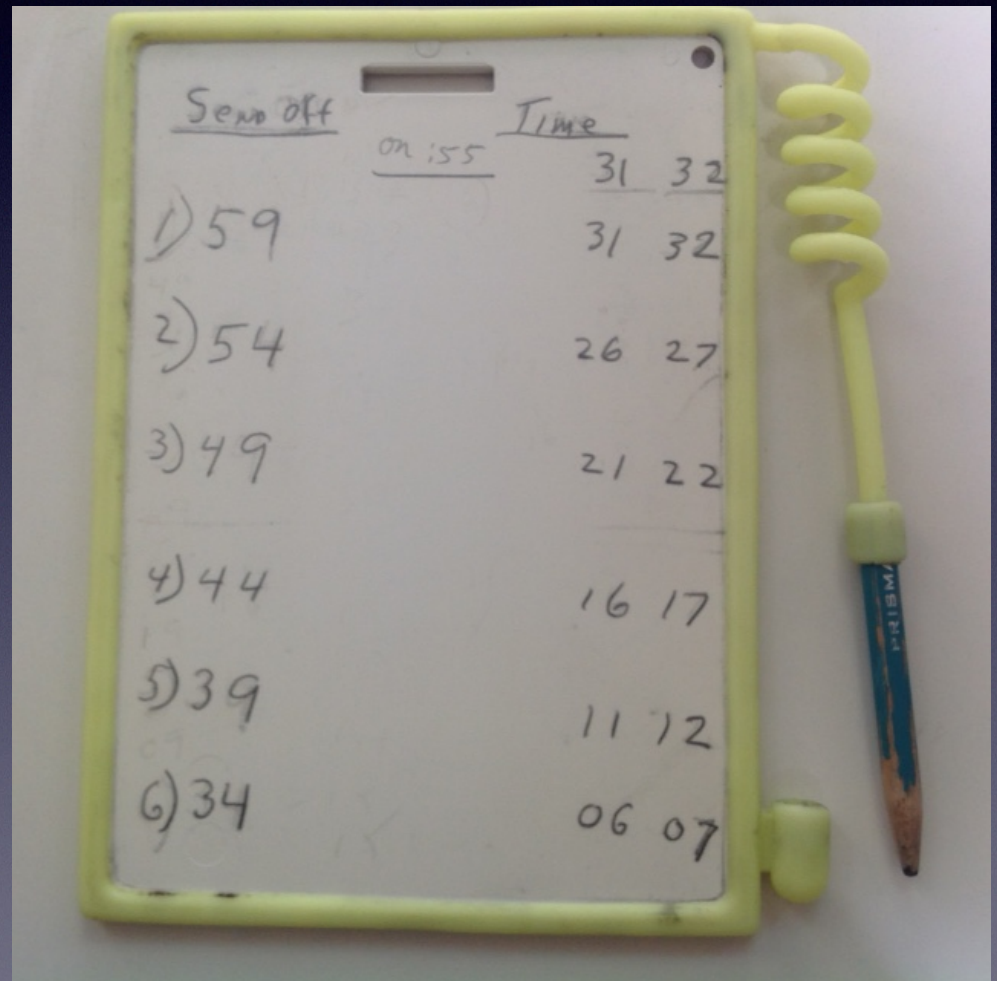 Send Off Time
on :55
31 32
1) 59 31 32
2) 54 26 27
3) 49 21 22
4) 44 16 17
5) 39 11 12
6) 34 06 07
PRISMA